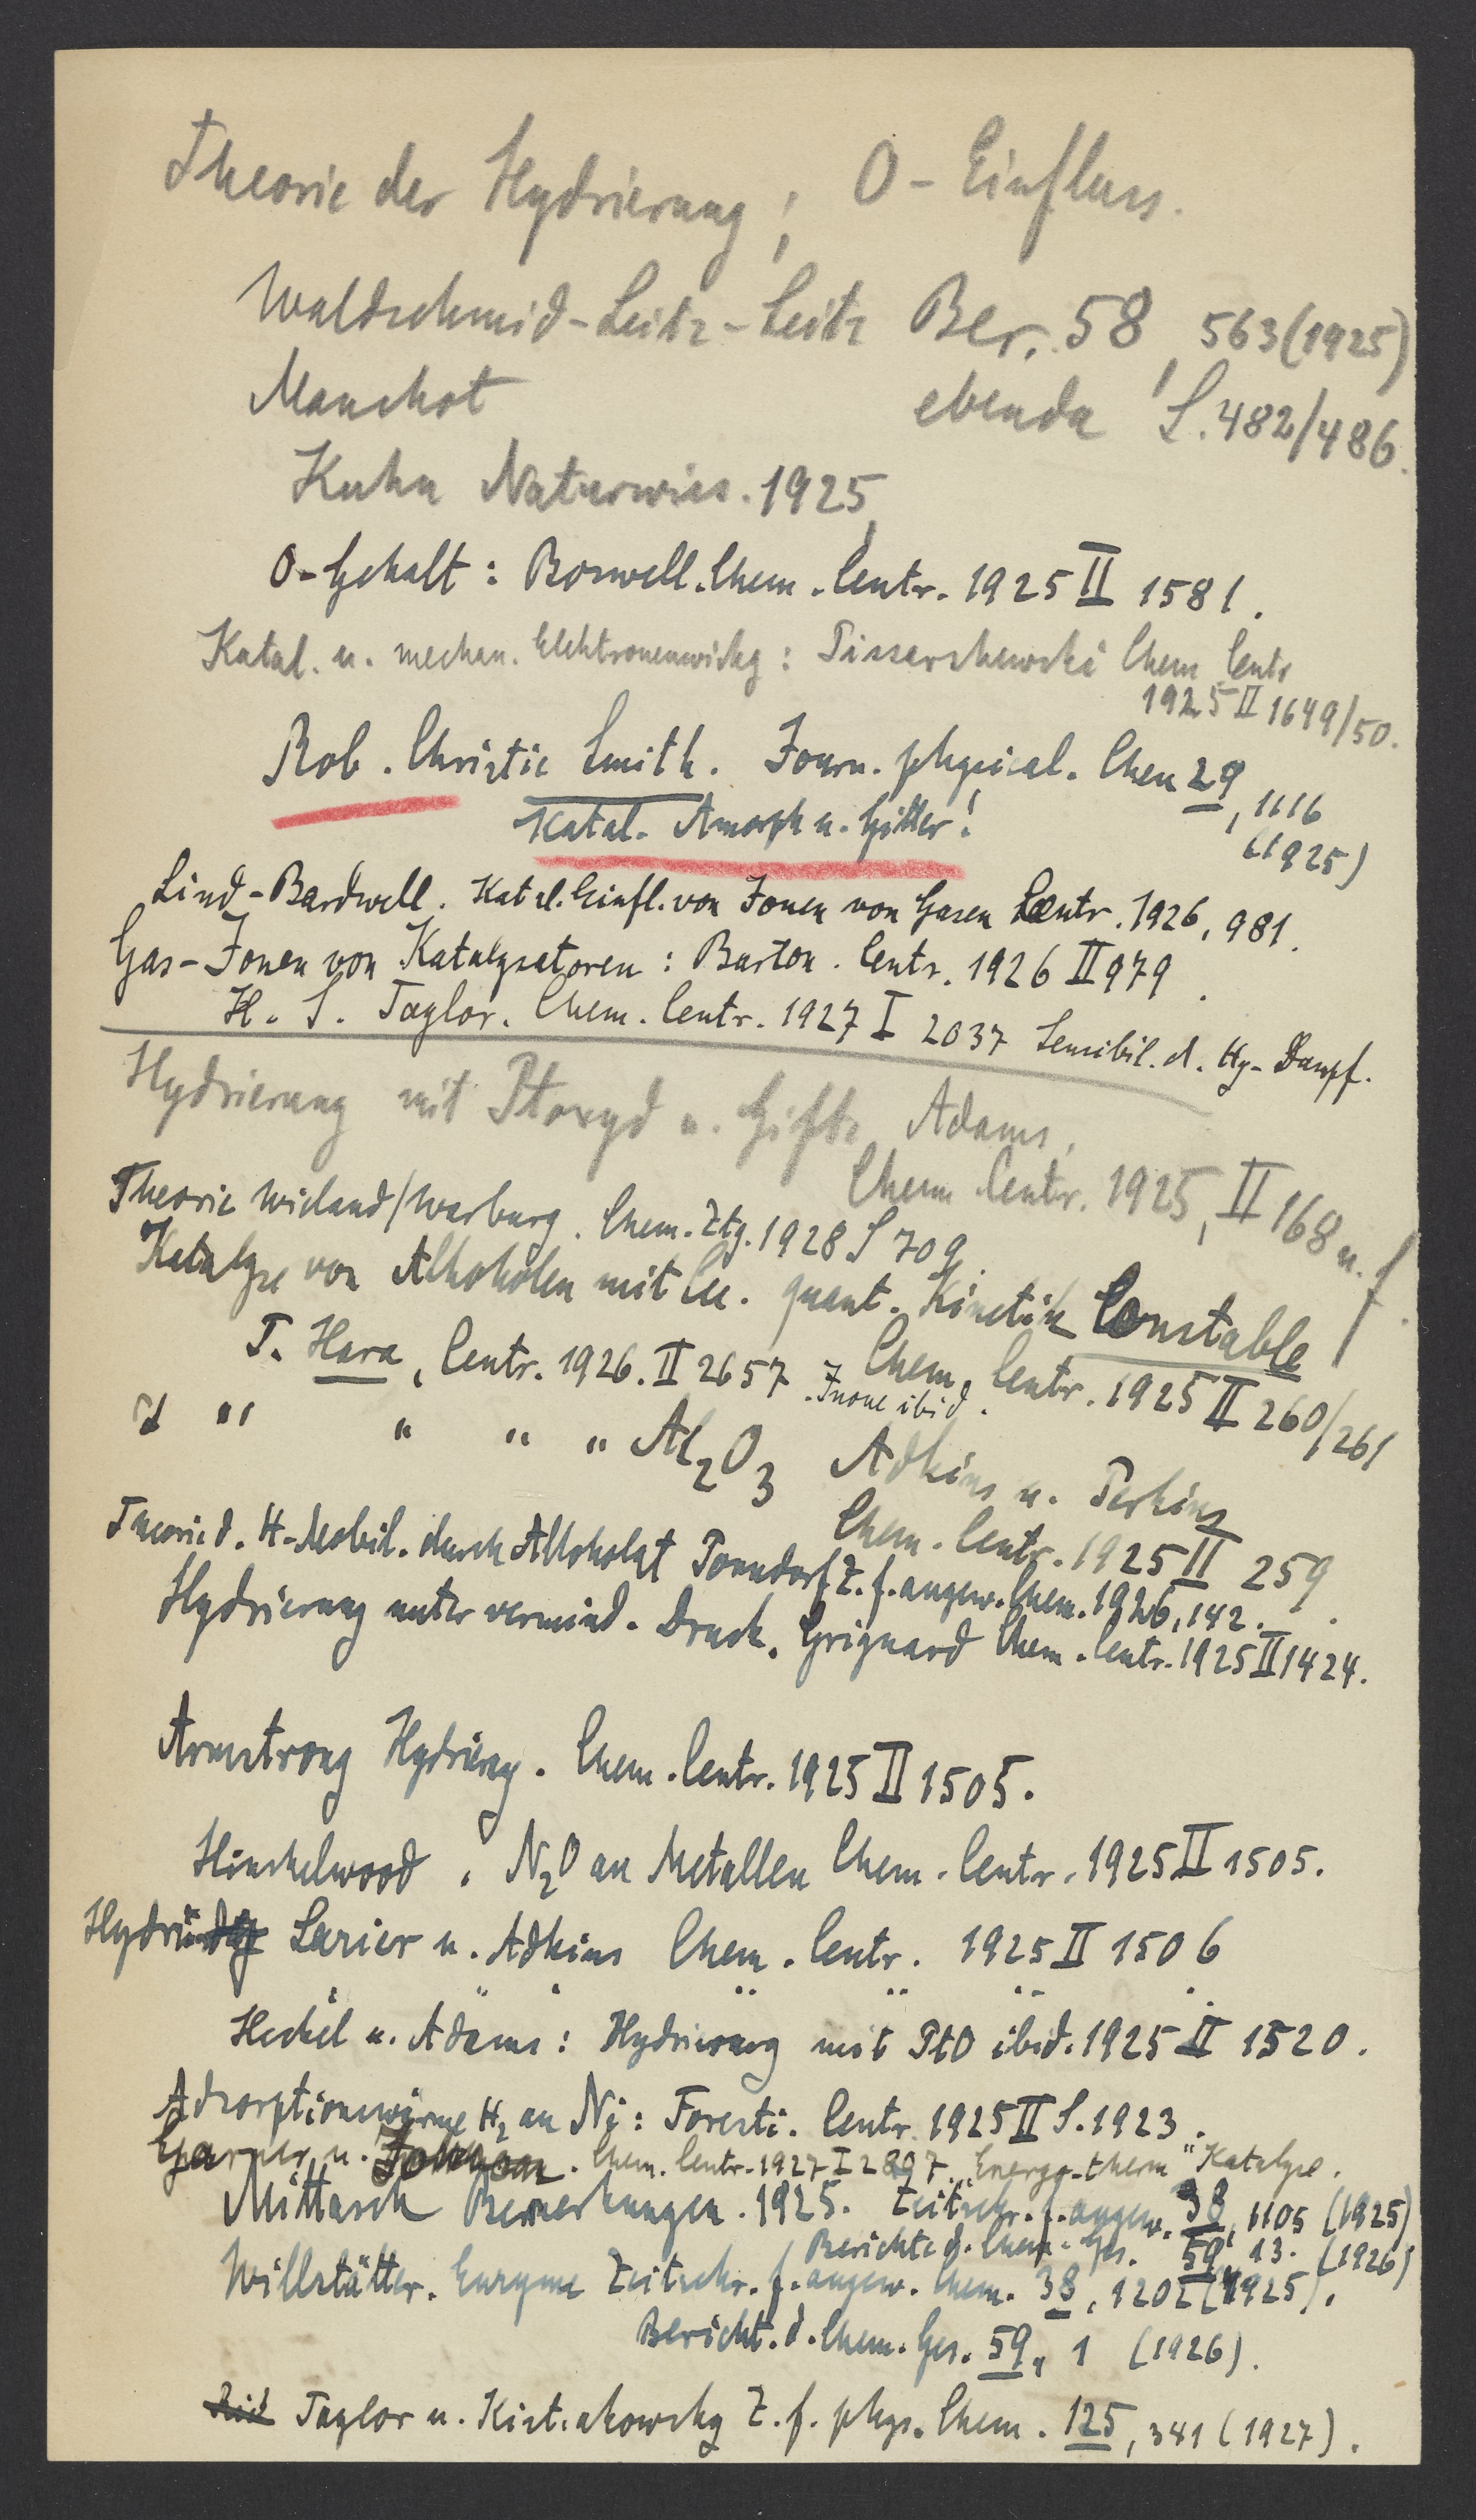 Theorie der Hydrierung; O-Einfluss.
Waldschmid-Leitz-Seitz Ber. 58, 563 (1925)
Manchot ebenda S. 482/486.
Kuhn Naturwiss. 1925,
O-Gehalt: Boswell. Chem. Centr. 1925 II 1581.
Katal. u. mechan. Elektronenwirkg: Pissarshewski Chem Centr
1925 II 1649/50.
Rob. Christie Smith. Journ. physical. Chem 29, 1116
(1925)
Katal. Amorph u. Gitter!
Lind-Bardwell. Katal. Einfl. von Jonen von Gasen Centr. 1926, 981.
Gas-Jonen von Katalysatoren: Burton. Centr. 1926 II 979.
H. S. Taylor. Chem. Centr. 1927 I 2037 Sensibil. d. Hg-Dampf.
Hydrierung mit Ptoxyd u. Gifte Adams,
Chem Centr. 1925, II 168 u. f.
Theorie Wieland/Warburg. Chem. Ztg. 1928 S 709.
Katalyse von Alkoholen mit Cu. quant. Kinetik Constable
Chem. Centr. 1925 II 260/261
T. Hara, Centr. 1926. II 2657. Inoue ibid.
" " " " " Al2O3 Adkins u. Perkins
Chem. Centr. 1925 II 259.
Theorie d. H-Mobil. durch Alkoholat Tonndorf Z. f. angew. Chem. 1926, 142.
Hydrierung unter vermind. Druck. Grignard Chem. Centr. 1925 II 1424.
Armstrong Hydrierg. Chem. Centr. 1925 II 1505.
Hinshelwood, N2O an Metallen Chem. Centr. 1925 II 1505.
Lazier u. Adkins Chem. Centr. 1925 II 1506
Heckel u. Adams: Hydrierung mit PtO ibid. 1925 II 1520.
Adsorptionswärme H2 an Ni: Foresti. Centr. 1925 II S. 1923.
Garner u. Chem. Centr. 1927 I 2897. "Energo-therm" Katalyse.
Mittasch Bemerkungen. 1925. Zeitschr. f. angew. 38, 1105 (1925)
Berichte d. Chem. Ges. 59, 13. (1926)
Willstätter. Enzyme Zeitschr. f. angew. Chem. 38, 1202 (1925).
Bericht. d. Chem. Ges. 59, 1 (1926).
Taylor u. Kistiakowsky Z. f. phys. Chem. 125, 341 (1927).